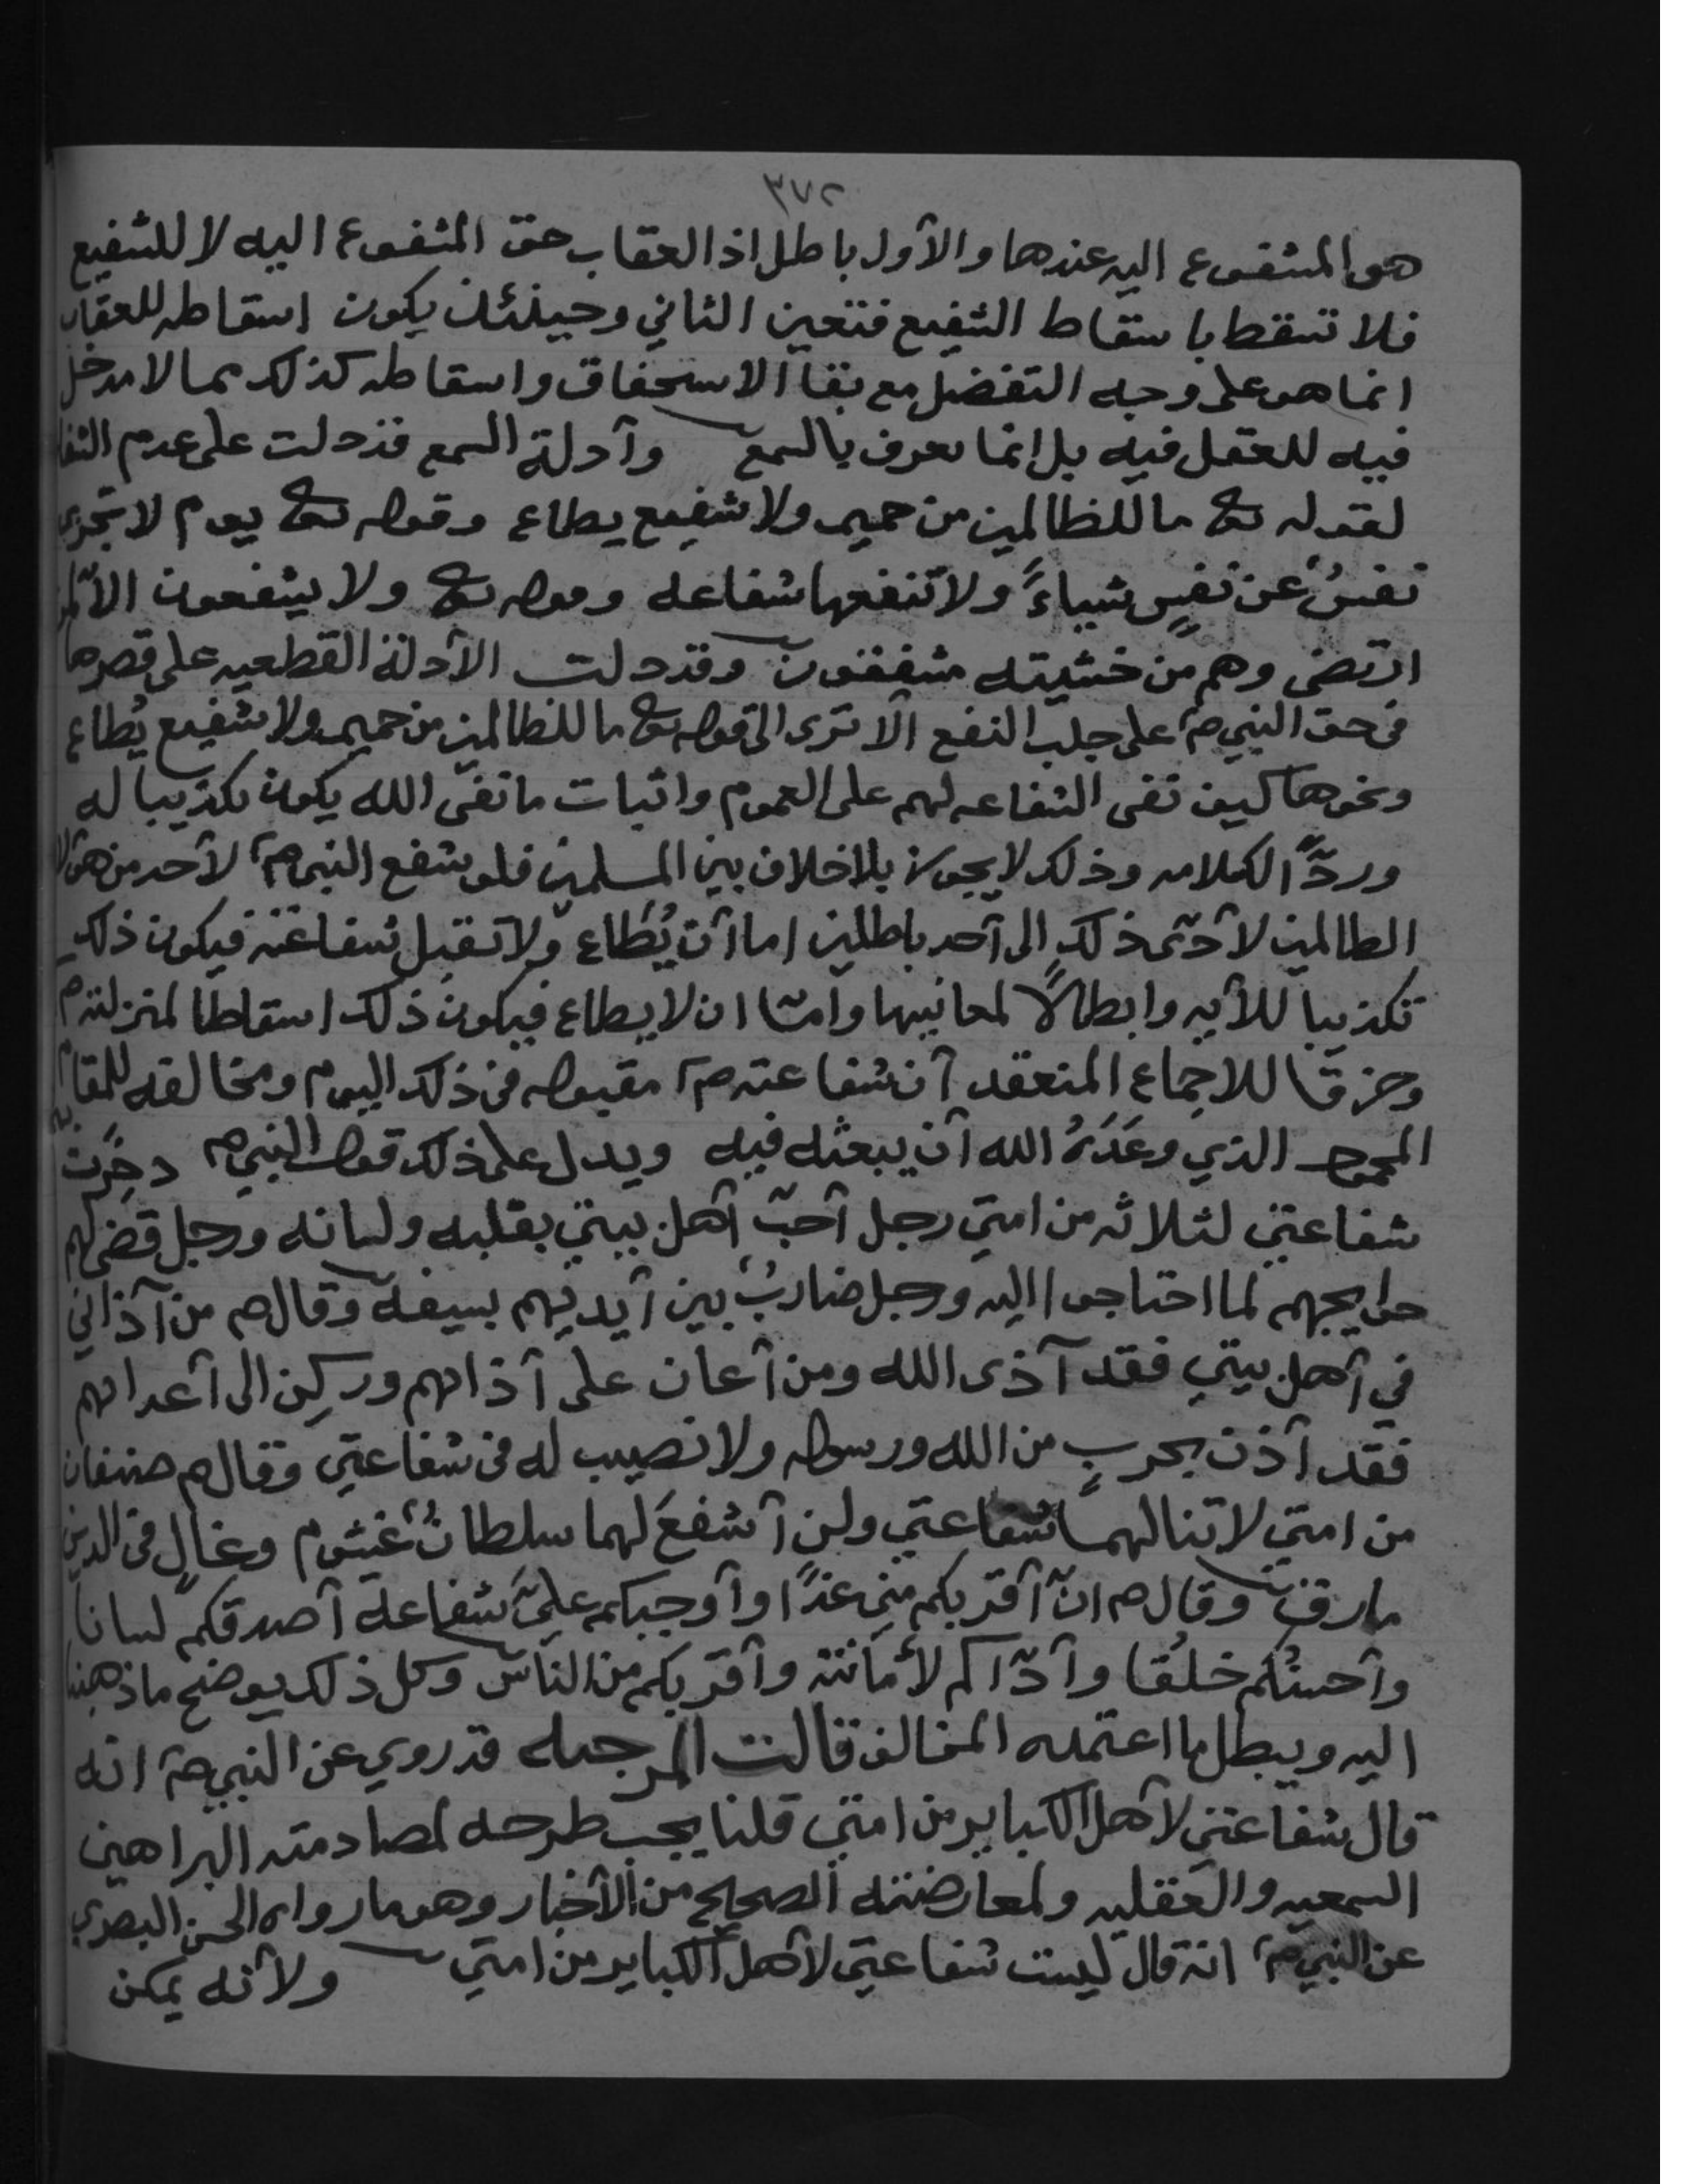 ٣٧٢
هو المشفوع اليه عندها والأول باطل اذ العقاب حق المشفوع اليه لا للشفيع
فلا تسقط باسقاط الشفيع فتعين الثاني وحينئذ يكون اسقاطه للعقاب
انما هو على وجه التفضل مع بقآ الاستحقاق واسقاطه كذلك مما لا مدخل
فيه للعقل فيه بل انما يعرف بالسمع وآدلة السمع قد دلت على عدم
لقوله تعا ما للظالمين من حميم ولا شفيع يطاع وقوله تعا يوم لا تجزى
نفسٌ عن نفسٍ شيئاءً ولا تنفعها شفاعه وقوله تعا ولا يشفعون الا لمن
ارتضى وهم من خشيته مشفقون وقد دلت الأدلة القطعيه على قصرها
في حق النبي صم على جلب النفع ألا ترى الى قوله تعا ما للظالمين من حميم ولا شفيع يُطاع
ونحوها كيف نفى الشفاعه لهم على العموم واثبات ما نفى الله يكون تكذيبا له
وردًّا لكلامه وذلك لا يجوز بلا خلاف بين المسلمين فلو شفع النبي صم لأحد من هؤلا
الظالمين لأدّى ذلك الى أحد باطلين اما أن يُطاع ولا تقبل شفاعته فيكون ذلك
تكذيبا للأيه وابطالًا لمعانيها وامّا ان لا يطاع فيكون ذلك اسقاطا لمنزلته صم
وخرقا للاجماع المنعقد أن شفاعته صم مقبوله في ذلك اليوم ومخالفه للمقام
المحمود الذي وعَدَهُ الله أن يبعثه فيه ويدل على ذلك قول النبي صم دخرت
شفاعتي لثلاثه من امتي رجل أحبّ أهل بيتي بقلبه ولسانه ورجل قضى لهم
حوايجهم لما احتاجوا اليه ورجل ضاربٌ بين أيديهم بسيفه وقال صم من آذاني
في أهل بيتي فقد آذى الله ومن أعان على آذاهم وركِن الى أعدائهم
فقد أذن بحربٍ من الله ورسوله ولا نصيب له في شفاعتي وقال صم صنفان
من امتي لا تنالهما شفاعتي ولن أشفعَ لهما سلطانٌ غشوم وغالٍ في الدين
مارق وقال صم انّ أقربكم مني غدًا وأوجبكم عليَّ شفاعة أصدقكم لسانا
وأحسنُكم خلُقا وأدّاكم لأمانته وأقربكم من الناس وكل ذلك يوضح ما ذهبنا
اليه ويبطل ما اعتمده المخالف قالت المرجئه قد روي عن النبي صم انه
قال شفاعتي لأهل الكباير من امتي قلنا يجب طرحه لمصادمته البراهين
السمعيه والعقليه ولمعارضته الصحيح من الأخبار وهو ما رواه الحسن البصري
عن النبي صم انه قال ليست شفاعتي لأهل الكباير من امتي ولأنه يمكن